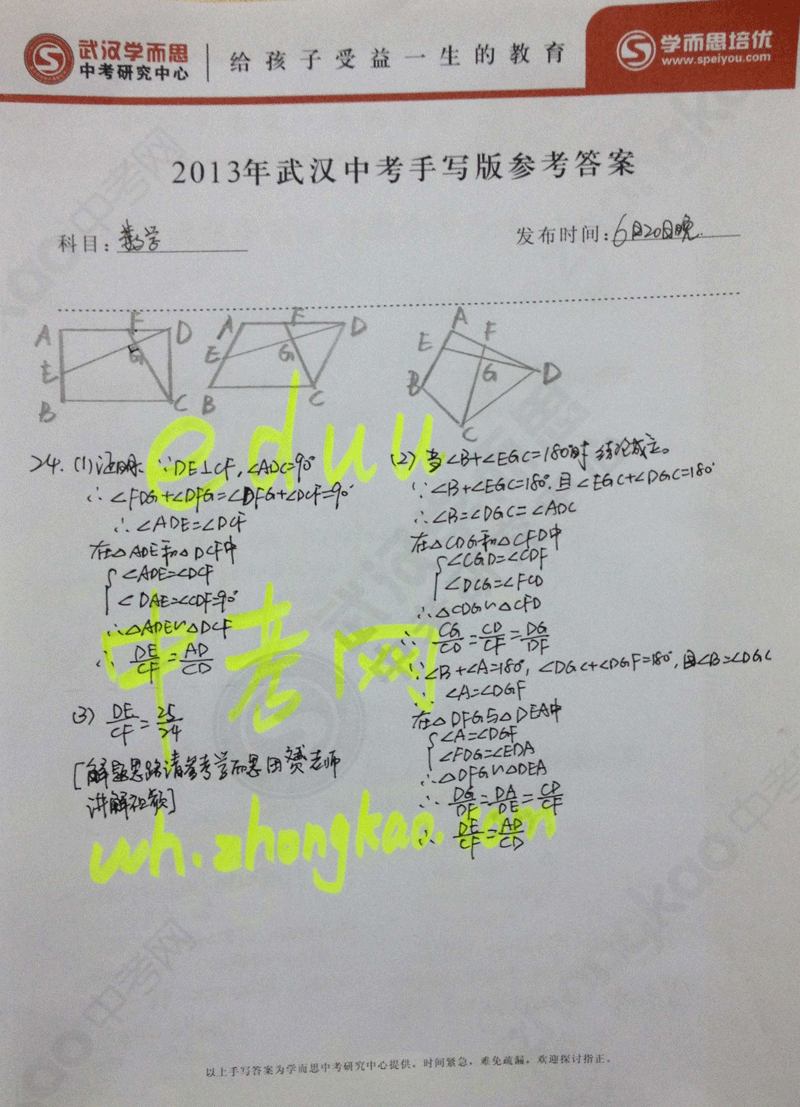 武汉学而思
中考研究中心
给孩子受益一生的教育
学而思培优
www.speiyou.com
2013年武汉中考手写版参考答案
科目：数学
发布时间：6月20日晚
A F D
E G
B C
A F D
E G
B C
A
E F
G D
B
C
24. (1) 证明 ∵DE⊥CF, ∠ADC=90°
∴∠FDG+∠DFG=∠DFG+∠DCF=90°
∴∠ADE=∠DCF
在△ADE和△DCF中
{∠ADE=∠DCF
∠DAE=∠CDF=90°
∴△ADE∽△DCF
∴ DE/CF = AD/CD
(3) DE/CF = 25/24
[解题思路请参考学而思田赟老师
讲解视频]
(2) 当∠B+∠EGC=180°时 结论成立。
∵∠B+∠EGC=180°, 且∠EGC+∠DGC=180°
∴∠B=∠DGC=∠ADC
在△CDG和△CFD中
{∠CGD=∠CDF
∠DCG=∠FCD
∴△CDG∽△CFD
∴ CG/CD = CD/CF = DG/DF
∵∠B+∠A=180°, ∠DGC+∠DGF=180°, 且∠B=∠DGC
∴∠A=∠DGF
在△DFG与△DEA中
{∠A=∠DGF
∠FDG=∠EDA
∴△DFG∽△DEA
∴ DG/DF = DA/DE = CD/CF
∴ DE/CF = AD/CD
eduu
中考网
wh.zhongkao.com
以上手写答案为学而思中考研究中心提供，时间紧急，难免疏漏，欢迎探讨指正。